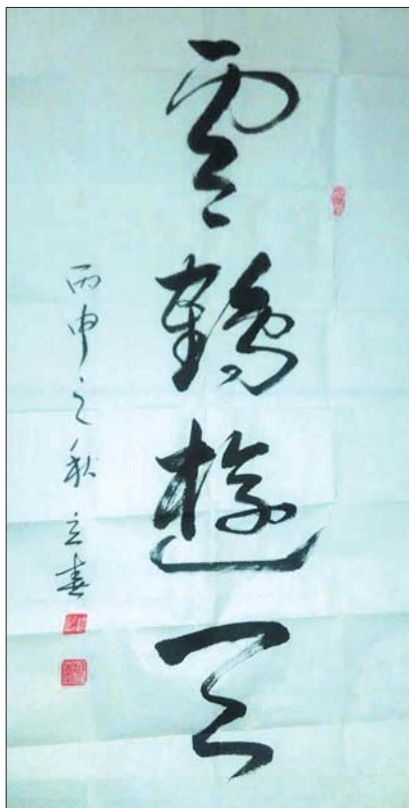 雲鶴遊天
丙申之秋立春